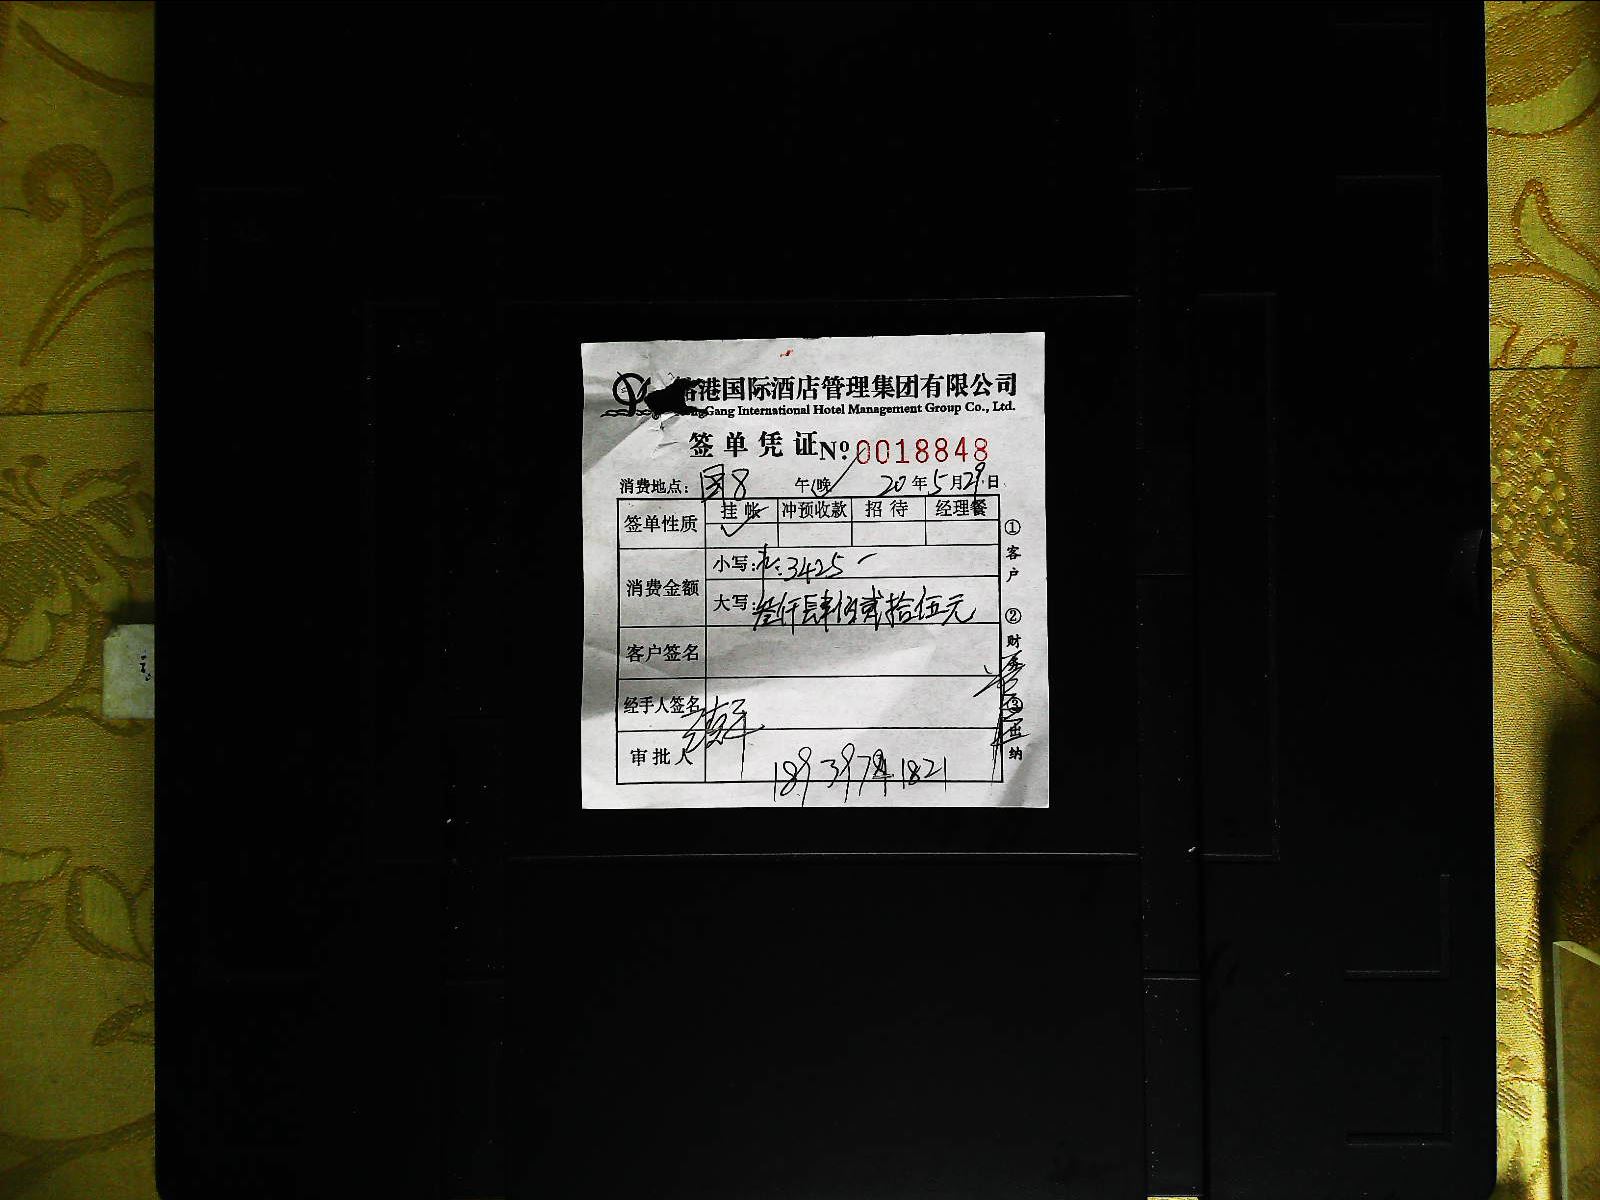 港国际酒店管理集团有限公司
Gang International Hotel Management Group Co., Ltd.
签单凭证 № 0018848
消费地点: 国8 午(晚 20年5月29日
签单性质 挂帐 冲预收款 招待 经理餐
消费金额 小写: 3425
大写: 叁仟肆佰贰拾伍元
客户签名
经手人签名
审批人
①客户 ②财务 ③出纳